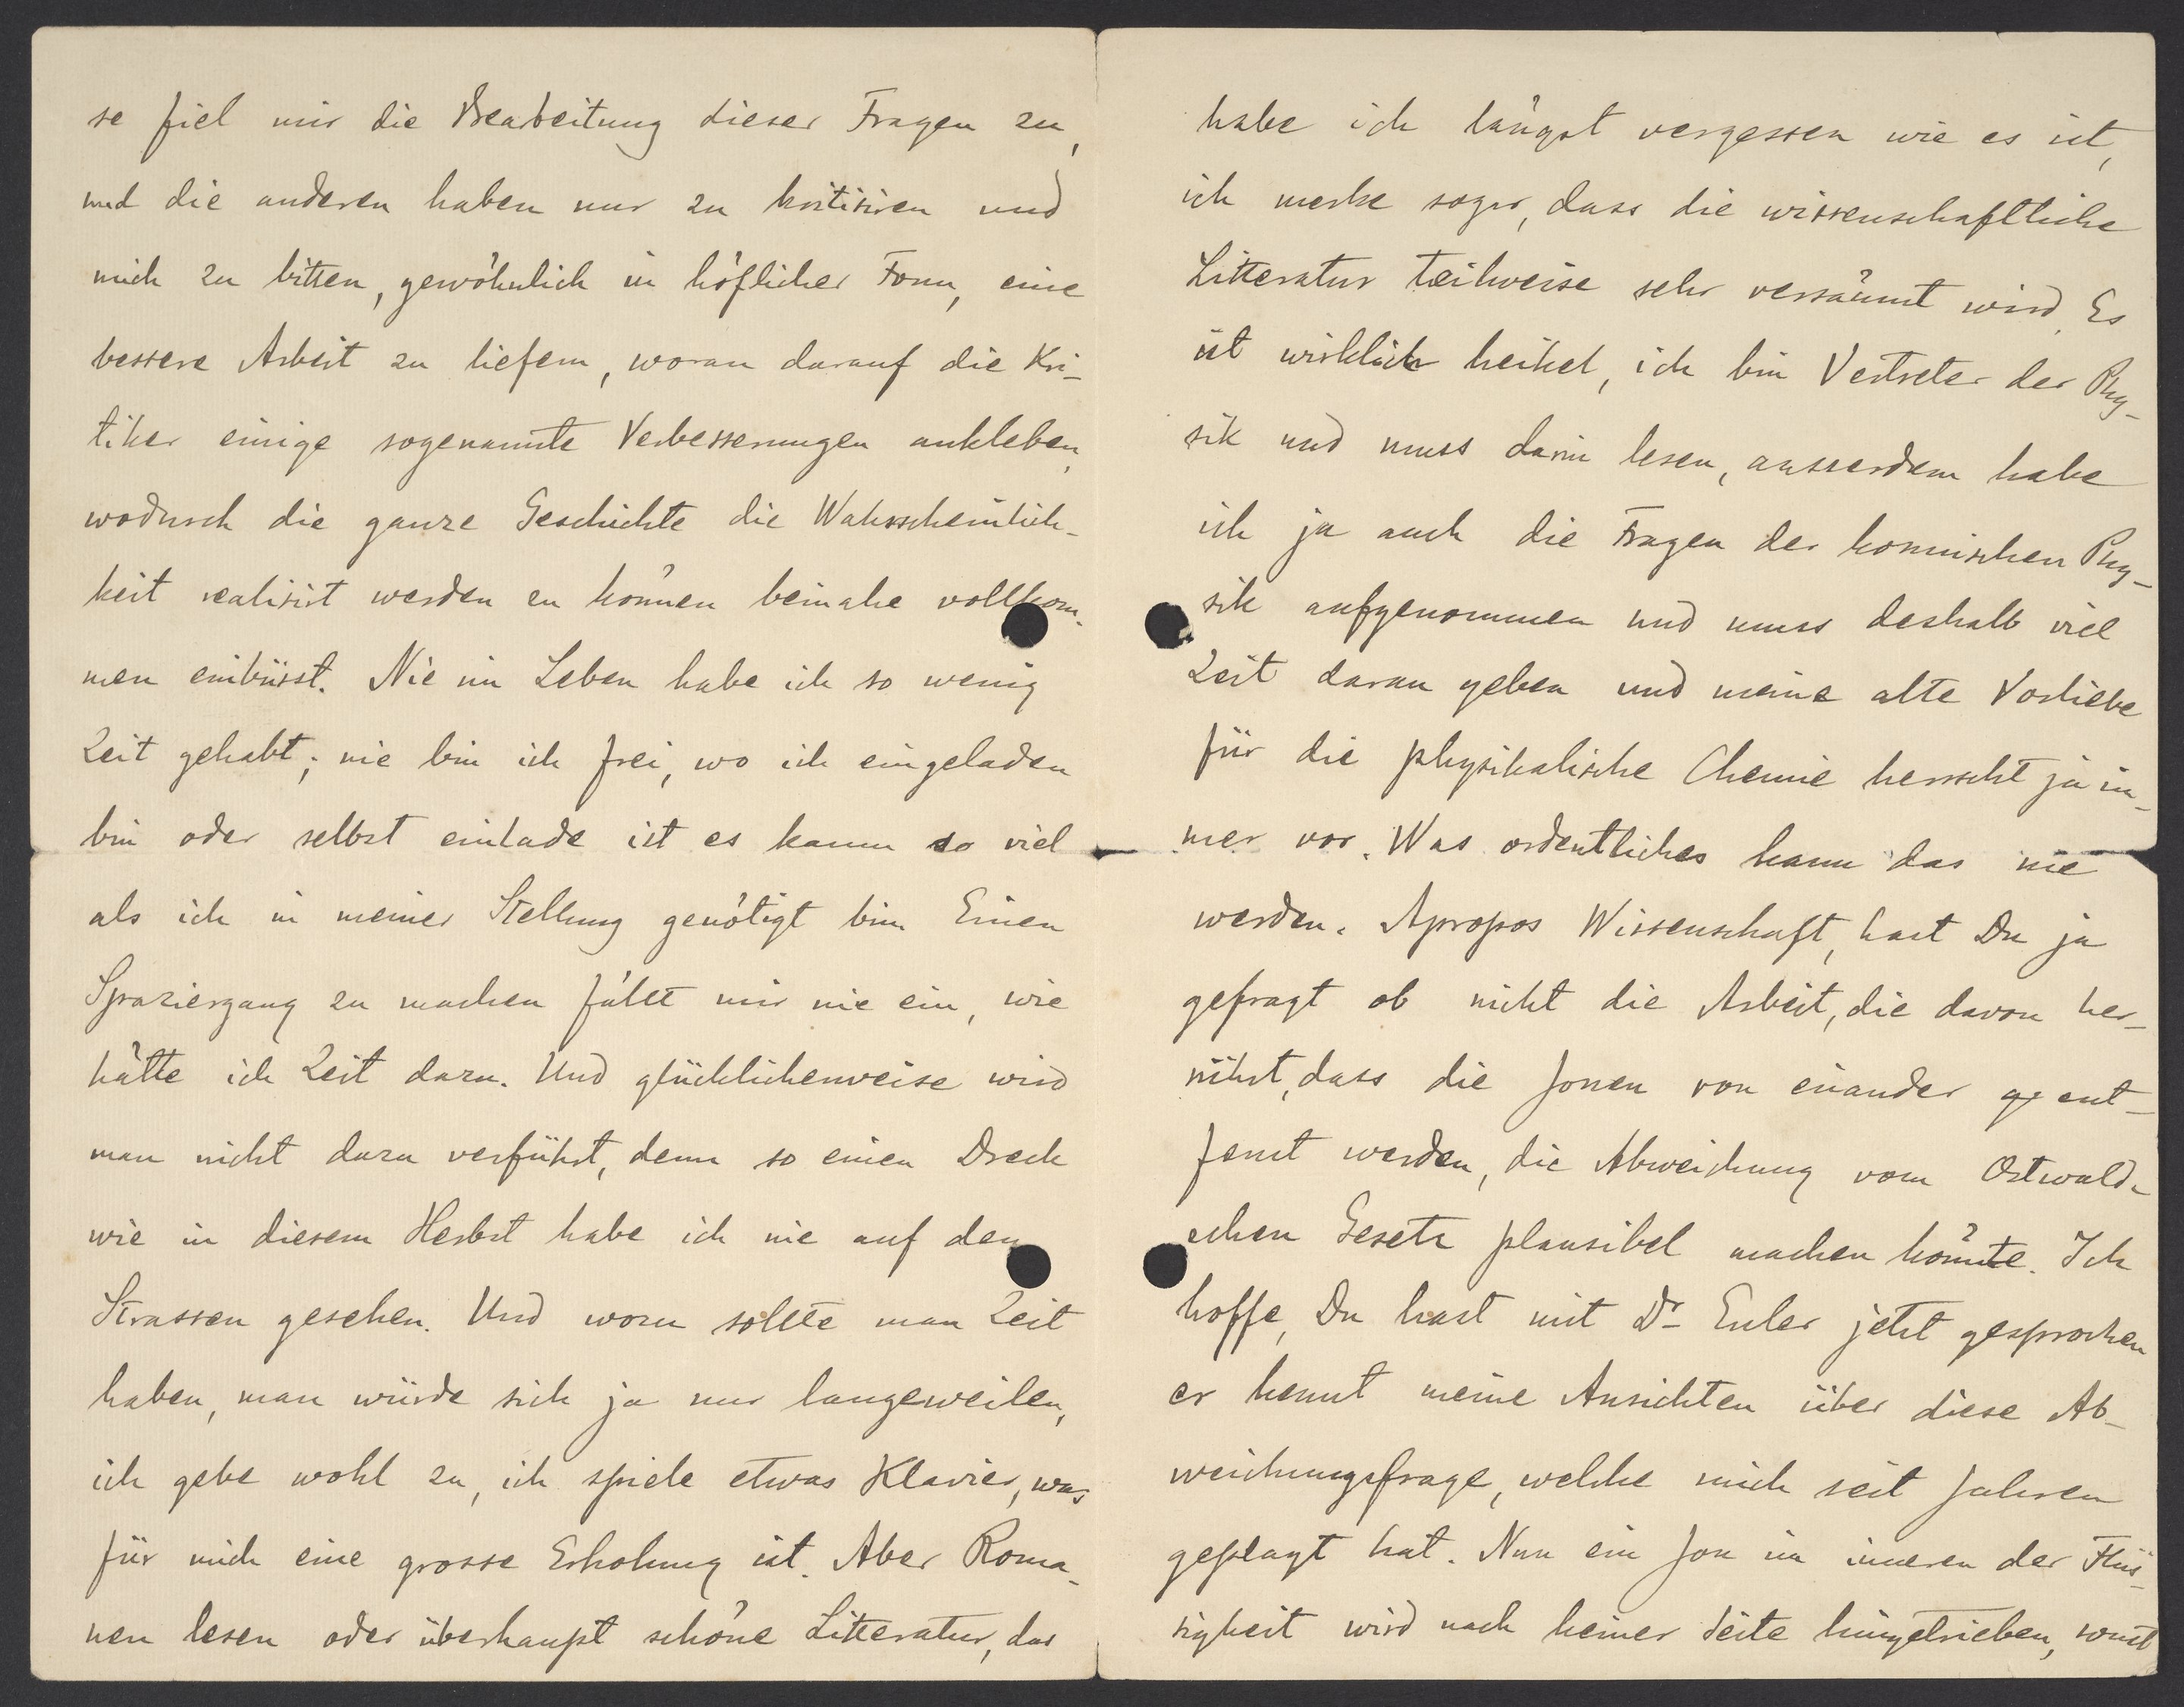 se fiel mir die Bearbeitung dieser Fragen zu,
und die anderen haben nur zu kritisiren und
mich zu bitten, gewöhnlich in höflicher Form, eine
bessere Arbeit zu liefern, woran darauf die Kri-
tiker einige sogenannte Verbesserungen ankleben,
wodurch die ganze Geschichte die Wahrscheinlich-
keit realisirt werden zu können beinahe vollkom-
men einbüsst. Nie im Leben habe ich so wenig
Zeit gehabt; nie bin ich frei, wo ich eingeladen
bin oder selbst einlade ist es kaum so viel
als ich in meiner Stellung genötigt bin Einen
Spaziergang zu machen fällt mir nie ein, wie
hätte ich Zeit dazu. Und glücklicherweise wird
man nicht dazu verführt, denn so einen Dreck
wie in diesem Herbst habe ich nie auf den
Strassen gesehen. Und wozu sollte man Zeit
haben, man würde sich ja nur langeweilen,
ich gebe wohl zu, ich spiele etwas Klavier, was
für mich eine grosse Erholung ist. Aber Roma-
nen lesen oder überhaupt schöne Litteratur, das
habe ich längst vergessen wie es ist,
ich merke sogar, dass die wissenschaftliche
Litteratur teilweise sehr versäumt wird. Es
ist wirklich heikel, ich bin Vertreter der Phy-
sik und muss darin lesen, ausserdem habe
ich ja auch die Fragen der kosmischen Phy-
sik aufgenommen und muss deshalb viel
Zeit daran geben und meine alte Vorliebe
für die physikalische Chemie herrscht ja im-
mer vor. Was ordentliches kann das nie
werden. Apropos Wissenschaft, hast Du ja
gefragt ob nicht die Arbeit, die davon her-
rührt, dass die Jonen von einander ge ent-
fernt werden, die Abweichung vom Ostwald-
schen Gesetz plausibel machen könnte. Ich
hoffe, Du hast mit Dr Euler jetzt gesprochen
er kennt meine Ansichten über diese Ab-
weichungsfrage, welche mich seit Jahren
geplagt hat. Nun ein Jon im inneren der Flüs-
sigkeit wird nach keiner Seite hingetrieben, sonst